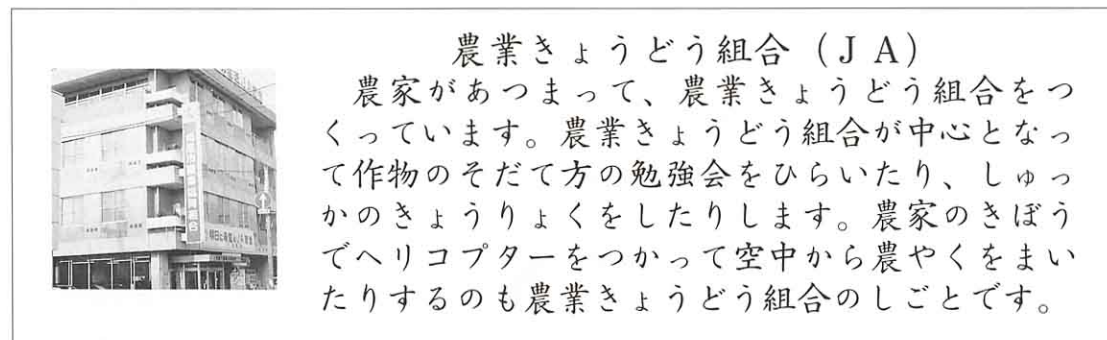 農業きょうどう組合(JA)
農家があつまって、農業きょうどう組合をつ
くっています。農業きょうどう組合が中心となっ
て作物のそだて方の勉強会をひらいたり、しゅっ
かのきょうりょくをしたりします。農家のきぼう
でヘリコプターをつかって空中から農やくをまい
たりするのも農業きょうどう組合のしごとです。